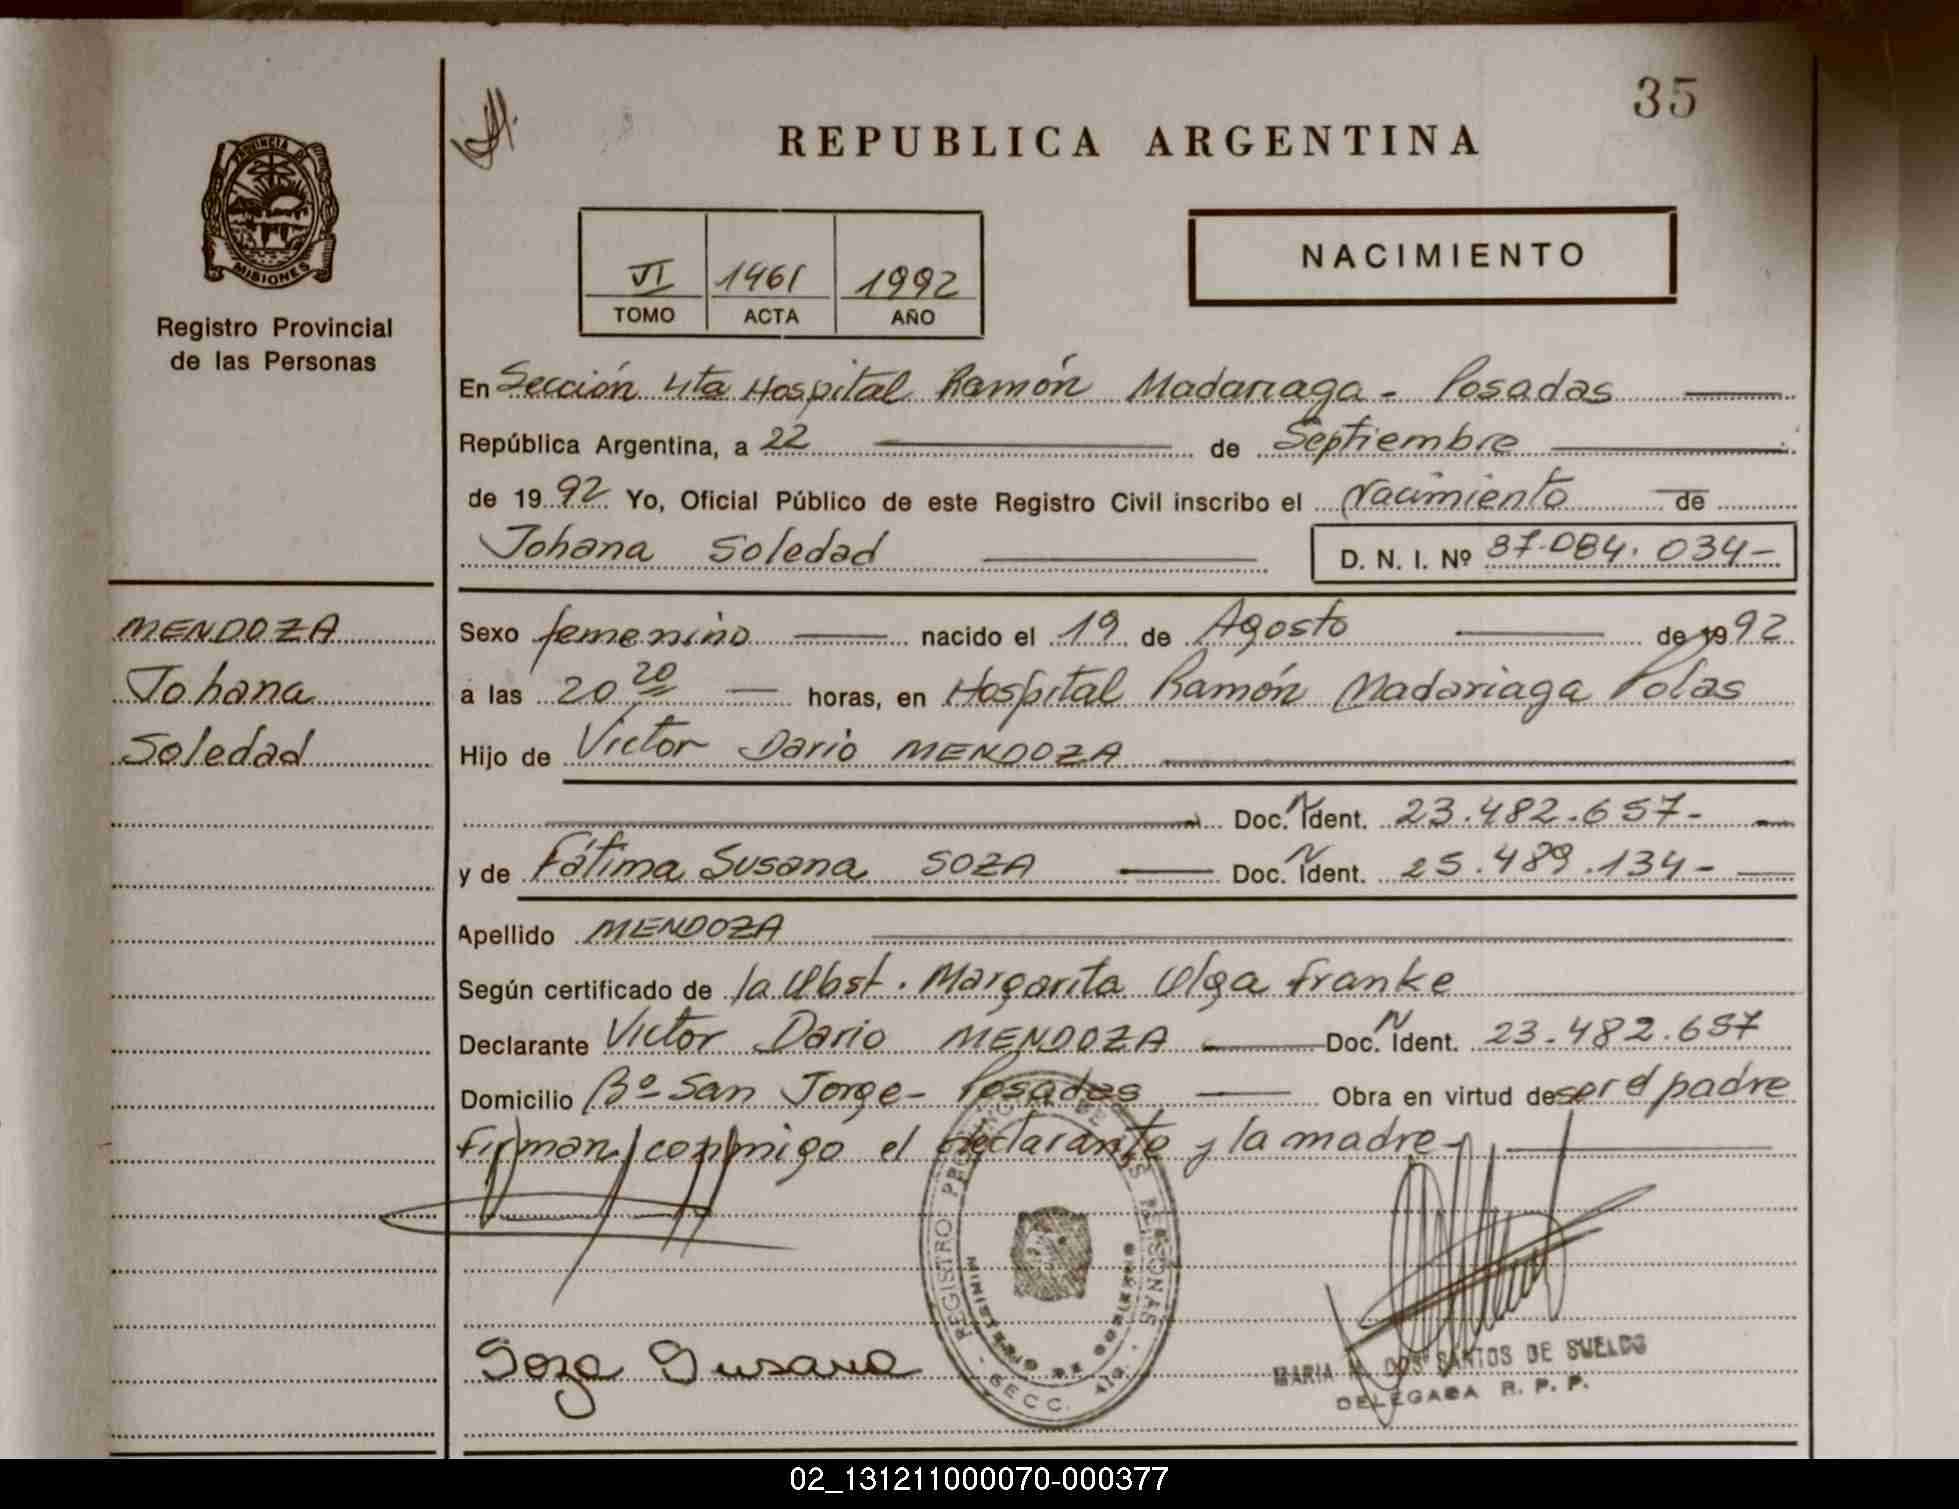 35
REPUBLICA ARGENTINA
PROVINCIA DE
MISIONES
Registro Provincial
de las Personas
VI 1461 1992
TOMO ACTA AÑO
NACIMIENTO
En Sección 4ta Hospital Ramón Madariaga - Posadas
República Argentina, a 22 de Septiembre
de 1992 Yo, Oficial Público de este Registro Civil inscribo el Nacimiento de
Johana Soledad D. N. I. Nº 37.084.034-
MENDOZA
Johana
Soledad
Sexo femenino nacido el 19 de Agosto de 1992
a las 20 20 horas, en Hospital Ramón Madariaga Pdas
Hijo de Victor Dario MENDOZA
Doc. N Ident. 23.482.657-
y de Fátima Susana SOZA Doc. N Ident. 25.489.134-
Apellido MENDOZA
Según certificado de la Obst. Margarita Olga Franke
Declarante Victor Dario MENDOZA Doc. N Ident. 23.482.657
Domicilio Bº San Jorge - Posadas Obra en virtud de ser el padre
firman conmigo el declarante y la madre-
REGISTRO PROVINCIAL DE LAS PERSONAS
SECC. 4ta.
Soza Susana
MARIA M. DOS SANTOS DE SUELDO
DELEGADA R. P. P.
02_131211000070-000377